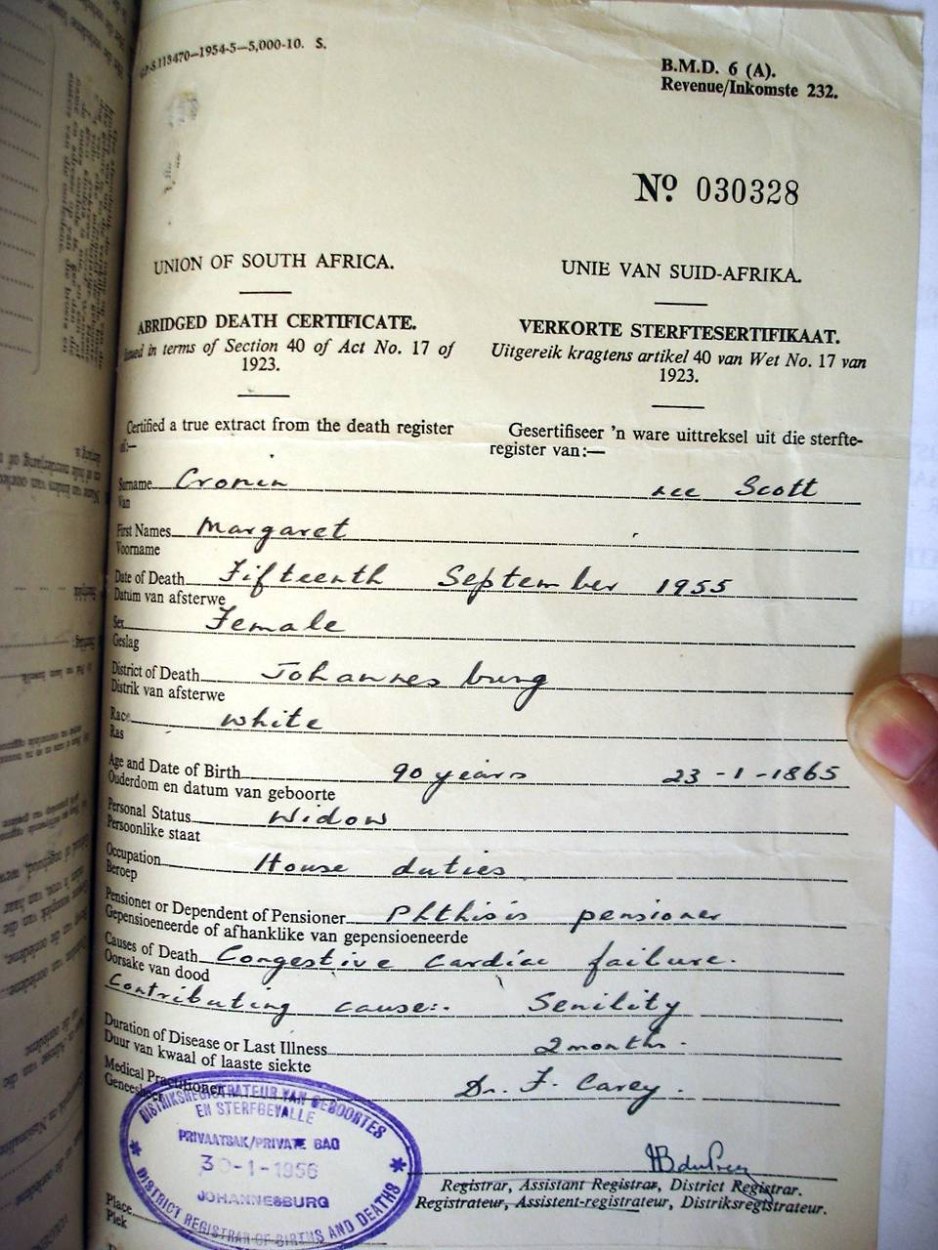 G.P.-S.113470—1954-5—5,000-10. S.
B.M.D. 6 (A).
Revenue/Inkomste 232.
No 030328
UNION OF SOUTH AFRICA.
ABRIDGED DEATH CERTIFICATE.
Issued in terms of Section 40 of Act No. 17 of
1923.
Certified a true extract from the death register
of:—
UNIE VAN SUID-AFRIKA.
VERKORTE STERFTESERTIFIKAAT.
Uitgereik kragtens artikel 40 van Wet No. 17 van
1923.
Gesertifiseer 'n ware uittreksel uit die sterfte-
register van:—
Surname Cronin nee Scott
Van
First Names Margaret
Voorname
Date of Death Fifteenth September 1955
Datum van afsterwe
Sex Female
Geslag
District of Death Johannesburg
Distrik van afsterwe
Race white
Ras
Age and Date of Birth 90 years 23-1-1865
Ouderdom en datum van geboorte
Personal Status Widow
Persoonlike staat
Occupation House duties
Beroep
Pensioner or Dependent of Pensioner Phthisis pensioner
Gepensioeneerde of afhanklike van gepensioeneerde
Causes of Death Congestive cardiac failure.
Oorsake van dood
Contributing cause:. Senility
Duration of Disease or Last Illness 2 months.
Duur van kwaal of laaste siekte
Medical Practitioner Dr. F. Carey.
Geneesheer
DISTRIKSREGISTRATEUR VAN GEBOORTES
EN STERFGEVALLE
PRIVAATSAK/PRIVATE BAG
30-1-1956
JOHANNESBURG
DISTRICT REGISTRAR OF BIRTHS AND DEATHS
Registrar, Assistant Registrar, District Registrar.
Registrateur, Assistent-registrateur, Distriksregistrateur.
Place
Plek